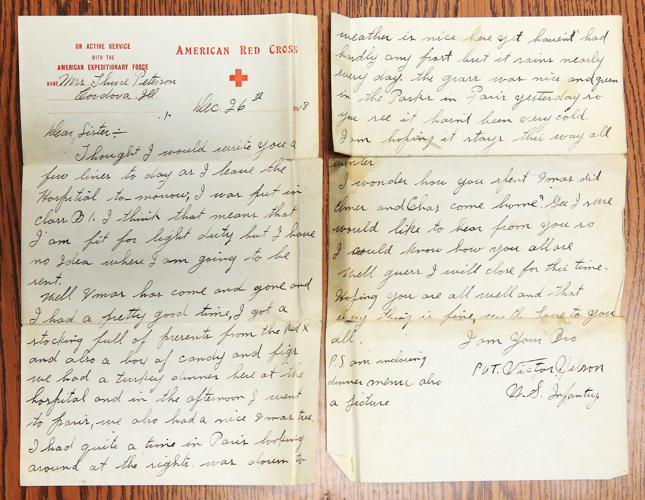 ON ACTIVE SERVICE
WITH THE
AMERICAN EXPEDITIONARY FORCE
AMERICAN RED CROSS
NAME Mrs. Thure Peterson
Cordova Ill
.1. Dec 26th 1918
Dear Sister:-
Thought I would write you a
few lines to day as I leave the
Hospital to-morrow, I was put in
class B1. I think that means that
I am fit for light duty but I have
no Idea where I am going to be
sent.
Well Xmas has come and gone and
I had a pretty good time, I got a
stocking full of presents from the Red X
and also a box of candy and figs
we had a turkey dinner here at the
hospital and in the afternoon I went
to paris, we also had a nice Xmas tree.
I had quite a time in Paris looking
around at the sights. was down to
weather is nice here yet havent had
hardly any frost but it rains nearly
every day. the grass was nice and green
in the Parks in Paris yesterday so
you see it hasnt been very cold.
I am hoping it stays this way all
winter
I wonder how you spent Xmas. did
Elmer and Chas come home? Gee I sure
would like to hear from you so
I could know how you all are
Well guess I will close for this time.
Hoping you are all well and that
every thing is fine, with love to you
all. I am Your Bro
P.S. am inclosing
dinner menu also
a picture
Pvt. Victor Nelson
U.S. Infantry